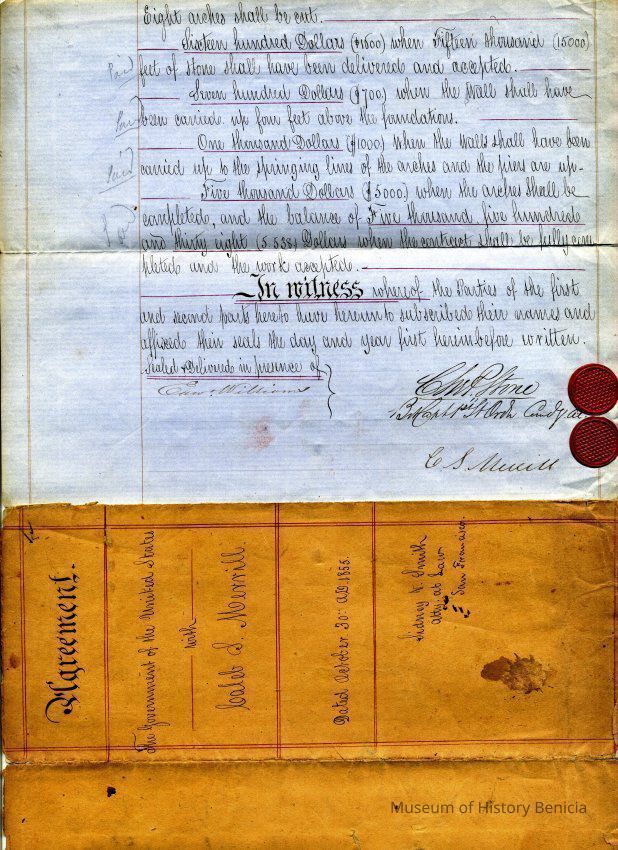 Eight arches shall be cut.
Sixteen hundred Dollars ($1600) when Fifteen thousand (15000)
feet of stone shall have been delivered and accepted.
Seven hundred Dollars ($700) when the wall shall have
been carried up four feet above the foundations.
One thousand Dollars ($1000) when the walls shall have been
carried up to the springing lines of the arches and the piers are up.
Five thousand Dollars ($5000) when the arches shall be
completed, and the balance of Five thousand five hundred
and thirty eight (5538) Dollars when the contract shall be fully com
pleted and the work accepted.
In witness whereof the Parties of the first
and second parts hereto have hereunto subscribed their names and
affixed their seals the day and year first hereinbefore written.
Sealed & Delivered in presence of
Edw. Williams
Chas. P. Stone
Bt Capt 1st Lt Ord. Comdg
C S Merrill
Paid
Paid
Paid
Agreement.
The Government of the United States
with
Caleb S. Merrill.
Dated October 30th AD. 1855.
Sidney V. Smith
Atty at Law
San Francisco.
Museum of History Benicia